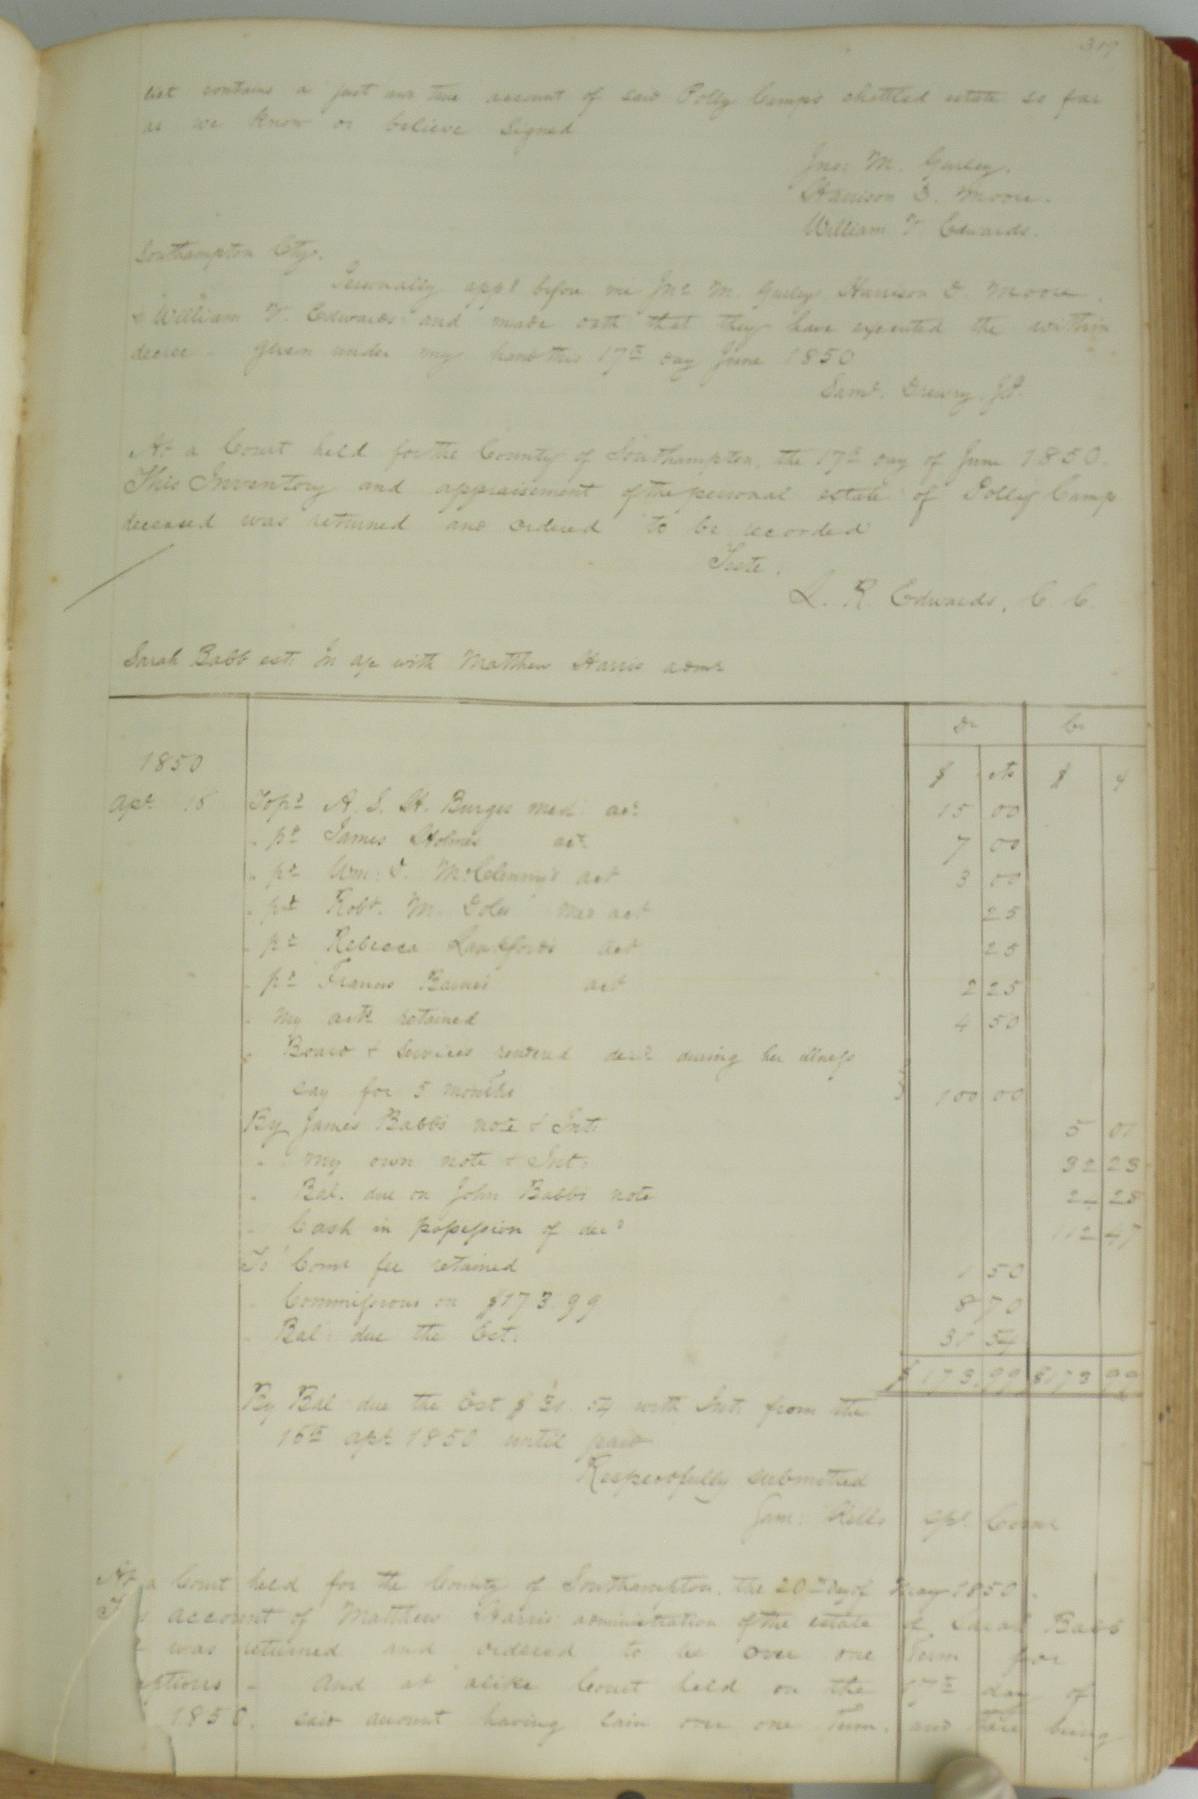 319
list contains a just and true account of said Polly Camps chattled estate so far
as we know or believe Signed
Jno. M. Gurley.
Harrison D. Moore.
William T. Edwards.
Southampton Cty.
Personally appd before me Jno M. Gurley Harrison D. Moore
& William T. Edwards and made oath that they have executed the within
decree Given under my hand this 17th day June 1850
Saml. Drewry. JP.
At a Court held for the County of Southampton, the 17th day of June 1850.
This Inventory and appraisement of the personal estate of Polly Camp
deceased was returned and ordered to be recorded
Teste.
L. R. Edwards, C. C.
Sarah Babb est. In a/c with Matthew Harris admr
Dr Cr
1850 $ cts $ ¢
Apr 15 To pd A. S. H. Burges med act 15 00
" pd James Holmes act 7 00
" pd Wm. D. McClenny's act 3 00
" pd Robt. M. Doles med act 25
" pd Rebecca Lankfords act 25
" pd Francis Barnes act 2 25
" my act retained 4 50
" Board & Services rendered decd during her illness
say for 5 months 100 00
By James Babbs note & Int. 5 01
" my own note & Int. 32 23
" Bal. due on John Babbs note 24 28
" Cash in possession of decd 112 47
To Comr fee retained 1 50
" Commissions on $173.99 8 70
" Bal due the Est. 31 54
$ 173 99 $173 99
By Bal due the Est $ 31.54 with Int. from the
15th apr 1850 until paid
Respectfully submitted
Jam. Kello Spl. Comr
At a Court held for the County of Southampton, the 20th day of May 1850.
account of Matthew Harris administration of the estate of Sarah Babb
was returned and ordered to lie over one Term for
ptions - And at alike Court held on the 17th day of
1850. said account having lain over one Term, and there being